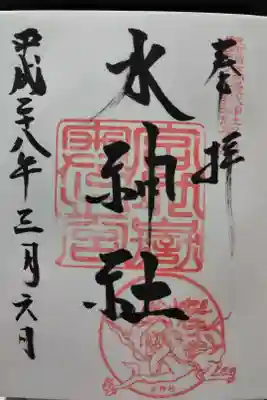 奉拝
水神社
平成二十八年三月六日